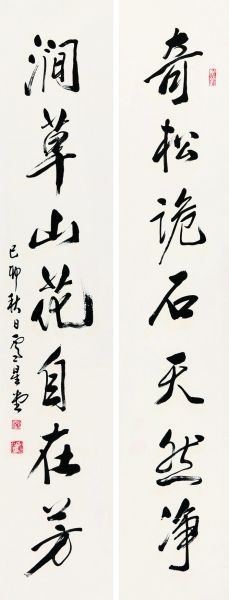 奇松诡石天然净
涧草山花自在芳
己卯秋日